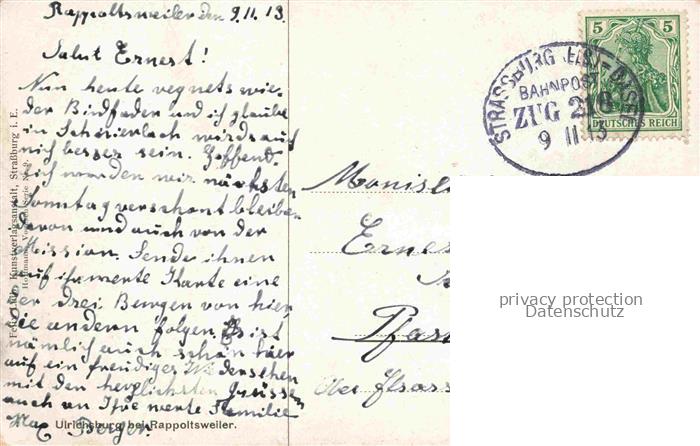 Rappoltsweiler den 9.11.13
Salut Ernest!
Nun heute regnets wie
der Bindfaden und ich glaube
in Schnierlach wirds auch
nich besser sein. Hoffent-
lich werden wir nächsten
Sonntag verschont bleiben
davon und auch von der
Mission. Sende ihnen
auf ihr werte Karte eine
der drei Burgen von hier
die andern folgen. Es ist
nämlich auch schön hier
auf ein freudiges Wiedersehen
mit den herzlichsten Grüssen
auch an Ihre werte Familie
Max Berger.
Ulrichsburg bei Rappoltsweiler.
Kunstverlagsanstalt, Straßburg i. E.
5 5
DEUTSCHES REICH
STRASSBURG (ELS)-BASEL
BAHNPOST
ZUG 218
9 11 13
Ernes
Ober Elsass
privacy protection
Datenschutz